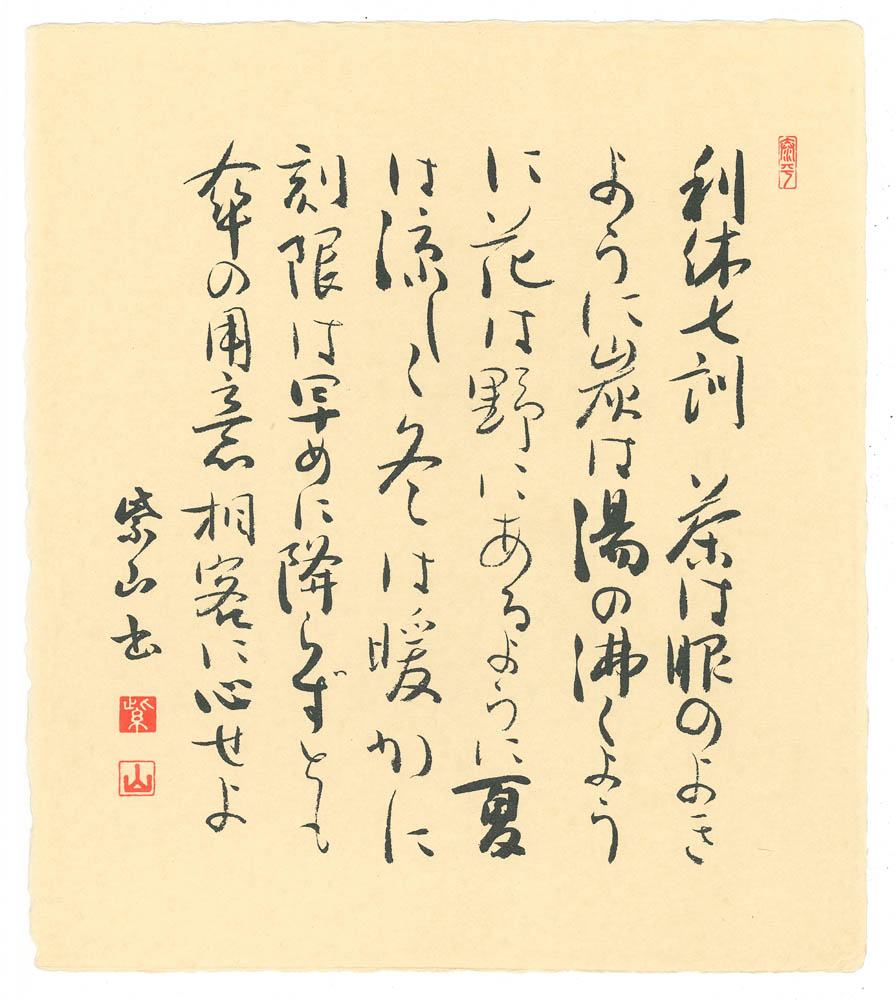 利休七訓　茶は服のよき
ように炭は湯の沸くよう
に花は野にあるように夏
は涼しく冬は暖かに
刻限は早めに降らずとも
傘の用意相客に心せよ
紫山書
紫
山